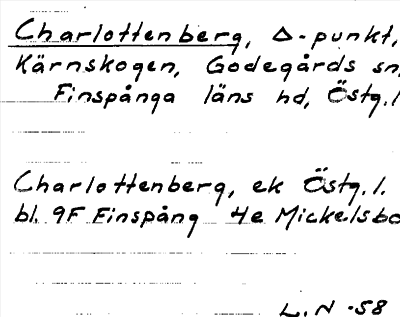 Charlottenberg, Δ-punkt,
Kärnskogen, Godegårds sn,
Finspånga läns hd, Östg.l
Charlottenberg, ek Östg.l.
bl. 9F Finspång 4e Mickelsbo
L.N -58